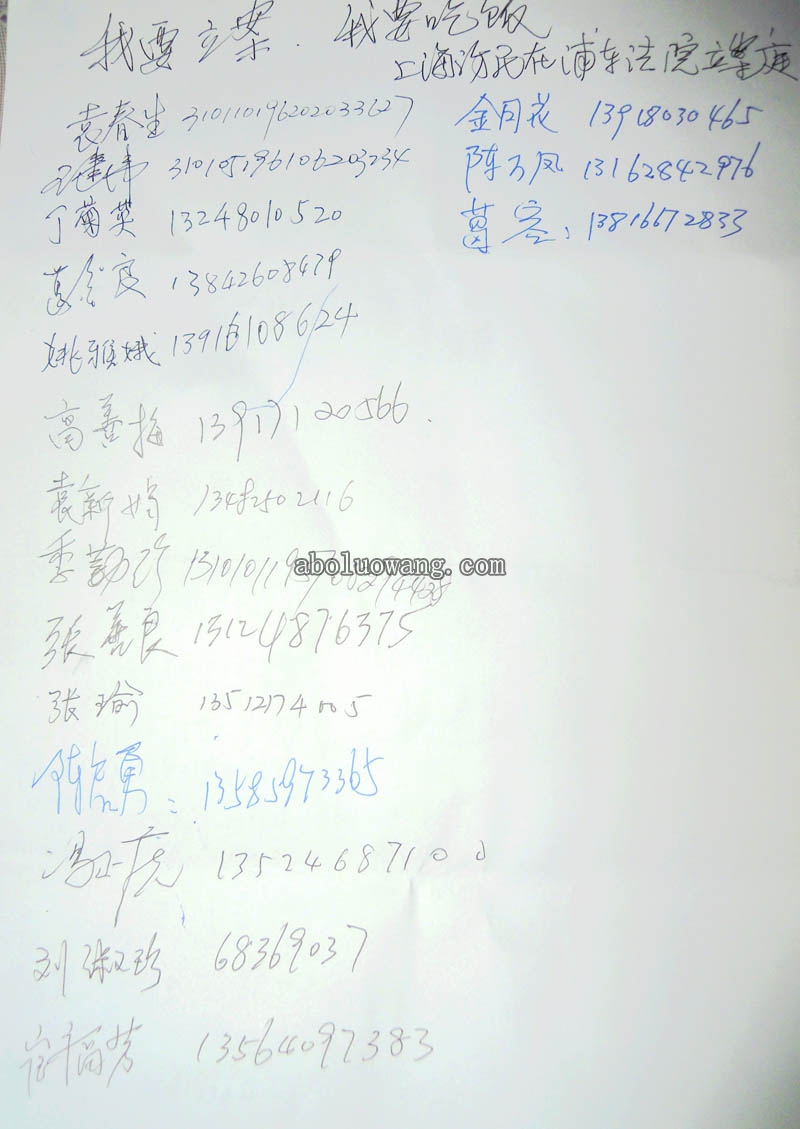 我要立案. 我要吃饭
上海访民在浦东法院立案庭
袁春生 310110196202033627
310105196106203234
丁菊英 13248010520
葛金度 13842608479
姚雅娥 13916108624
高善梅 13917120566.
袁新娟 13482502116
季勤珍
张善良 13124876375
张瑜 13512174005
陈启勇: 13585973365
冯正虎 13524687100
刘淑珍 68369037
崔福芳 13564097383
金月花 13918030465
陈万凤 13162842976
葛容: 13816672833
aboluowang.com